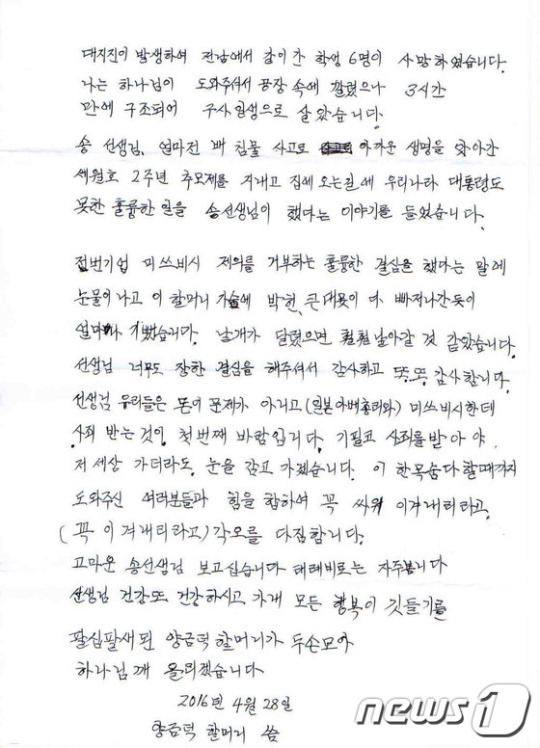 대지진이 발생하여 전남에서 같이간 학생 6명이 사망하였습니다.
나는 하나님이 도와주셔서 공장 속에 깔렸으나 3시간
만에 구조되어 구사일생으로 살았습니다.
송 선생님, 얼마전 배 침몰 사고로 아까운 생명을 앗아간
세월호 2주년 추모제를 지내고 집에 오는길에 우리나라 대통령도
못한 훌륭한 일을 송선생님이 했다는 이야기를 들었습니다.
전범기업 미쓰비시 제의를 거부하는 훌륭한 결심을 했다는 말에
눈물이 나고 이 할머니 가슴에 박힌, 큰대못이 다 빠져나간듯이
얼마나 기뻤습니다. 날개가 달렸으면 훨훨날아갈 것 같았습니다.
선생님 너무도 장한 결심을 해주셔서 감사하고 또, 또, 감사합니다.
선생님 우리들은 돈이 문제가 아니고 (일본아베총리와) 미쓰비시한데
사죄 받는것이 첫번째 바람입니다. 기필코 사죄를받아야
저세상 가더라도, 눈을 감고 가겠습니다. 이 한목숨다 할때까지
도와주신 여러분들과 힘을 합하여 꼭 싸워 이겨내리라고
(꼭 이겨내리라고) 각오를 다짐합니다.
고마운 송선생님 보고싶습니다 테레비로는 자주봅니다
선생님 건강또 건강하시고 가내 모든 행복이 깃들기를
팔십팔새된 양금덕할머니가 두손모아
하나님께 올리겠습니다
2016년 4월 28일
양금덕 할머니 씀
news1